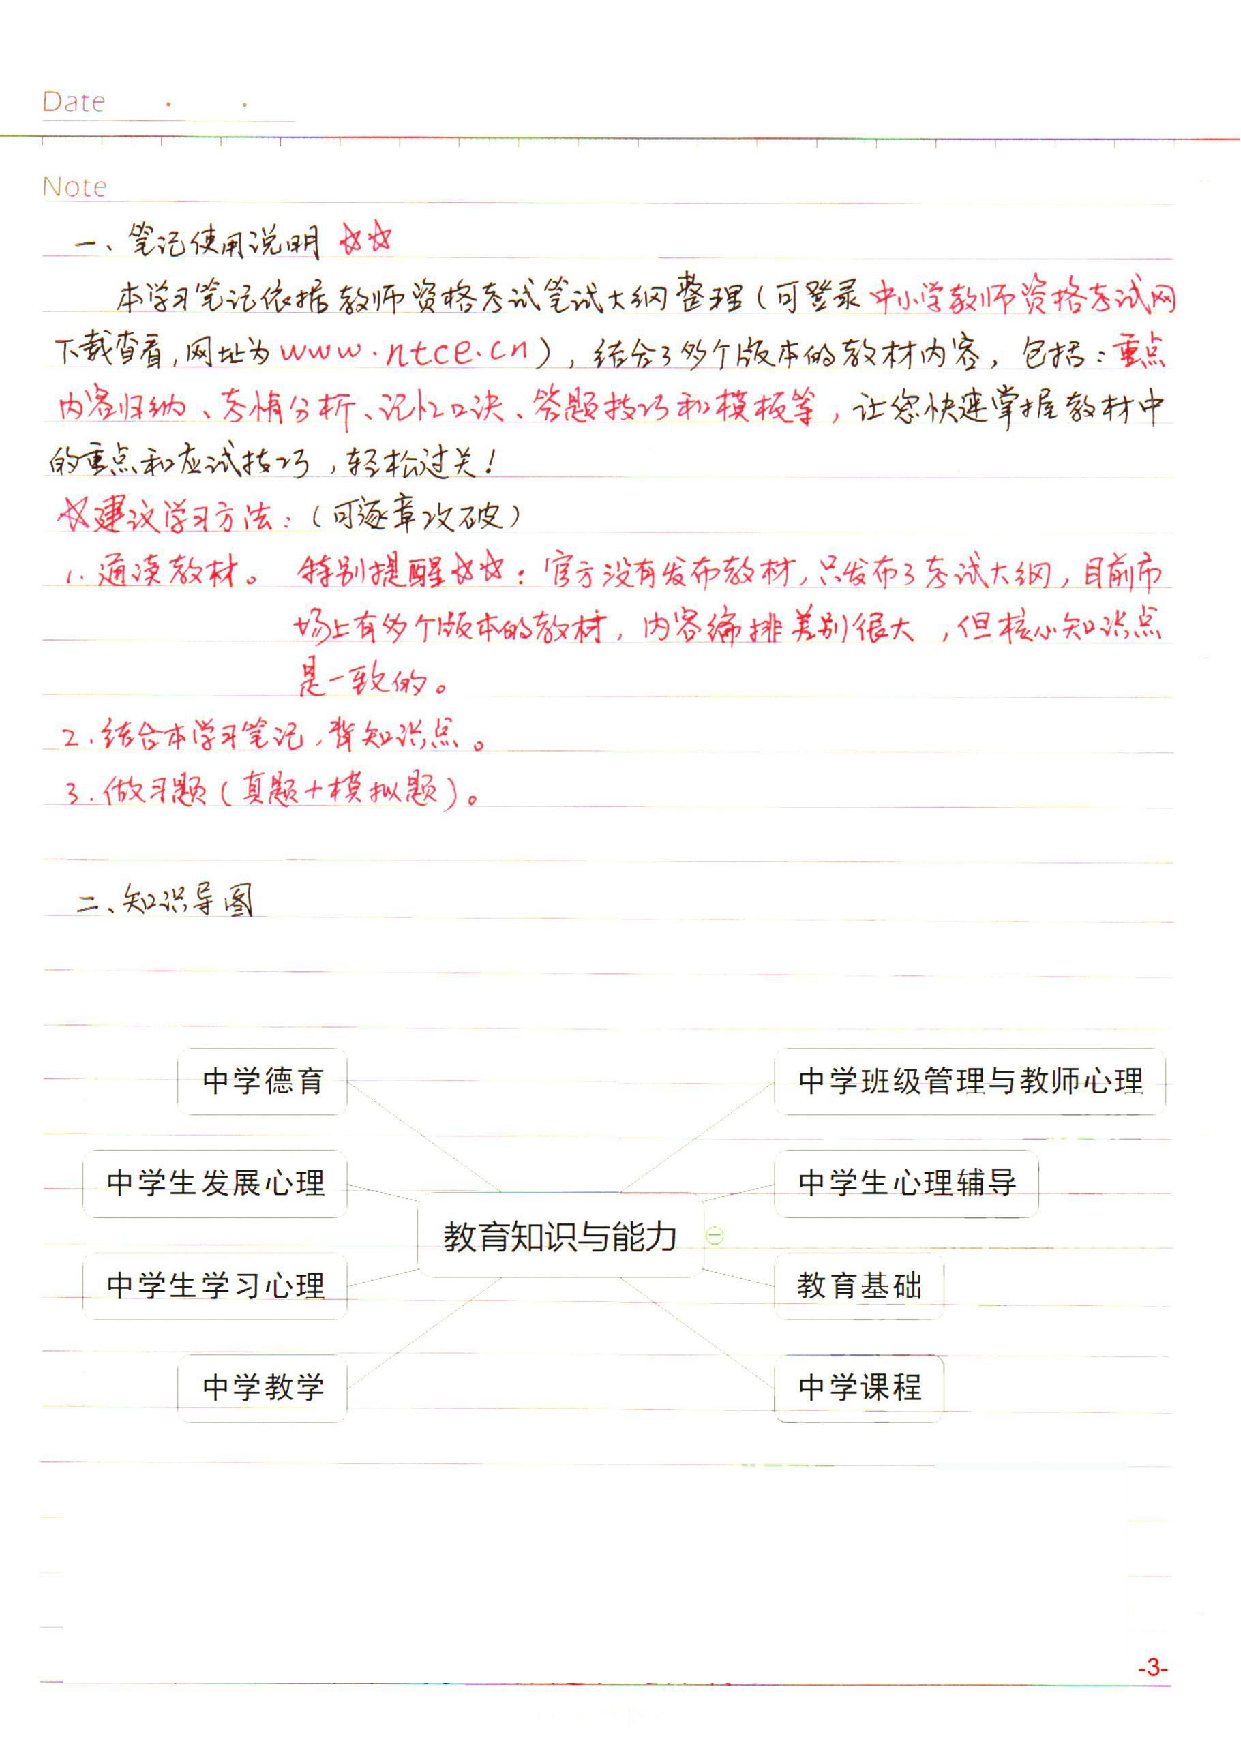 Date
Note
一、笔记使用说明 ☆☆
本学习笔记依据教师资格考试笔试大纲整理（可登录中小学教师资格考试网
下载查看,网址为www.ntce.cn），结合了多个版本的教材内容，包括：重点
内容归纳、考情分析、记忆口诀、答题技巧和模板等，让您快速掌握教材中
的重点和应试技巧，轻松过关！
☆建议学习方法：（可逐章攻破）
1.通读教材。 特别提醒☆☆：官方没有发布教材,只发布了考试大纲，目前市
场上有多个版本的教材，内容编排差别很大，但核心知识点
是一致的。
2.结合本学习笔记，背知识点。
3.做习题（真题+模拟题）。
二、知识导图
中学德育
中学班级管理与教师心理
中学生发展心理
中学生心理辅导
教育知识与能力
中学生学习心理
教育基础
中学教学
中学课程
-3-